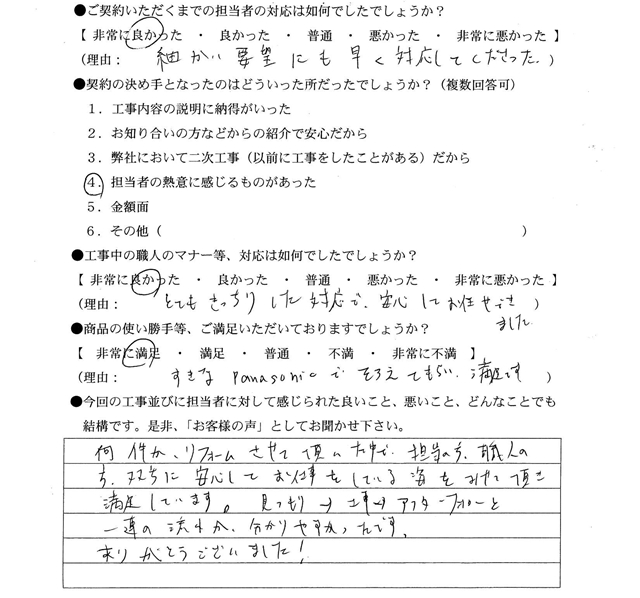 ●ご契約いただくまでの担当者の対応は如何でしたでしょうか？
【 非常に良かった ・ 良かった ・ 普通 ・ 悪かった ・ 非常に悪かった 】
(理由： 細かい要望にも早く対応してくださった. )
●契約の決め手となったのはどういった所だったでしょうか？（複数回答可）
１．工事内容の説明に納得がいった
２．お知り合いの方などからの紹介で安心だから
３．弊社において二次工事（以前に工事をしたことがある）だから
４．担当者の熱意に感じるものがあった
５．金額面
６．その他（ ）
●工事中の職人のマナー等、対応は如何でしたでしょうか？
【 非常に良かった ・ 良かった ・ 普通 ・ 悪かった ・ 非常に悪かった 】
(理由： とてもきっちりした対応で、安心してお任せでき )
ました
●商品の使い勝手等、ご満足いただいておりますでしょうか？
【 非常に満足 ・ 満足 ・ 普通 ・ 不満 ・ 非常に不満 】
(理由： すきな Panasonic で そろえてもらい、満足です )
●今回の工事並びに担当者に対して感じられた良いこと、悪いこと、どんなことでも
結構です。是非、「お客様の声」としてお聞かせ下さい。
何件か、リフォームさせて頂いた中で、担当の方、職人の
方、双方に安心してお仕事をしている姿をみせて頂き
満足しています。見つもり→工事→アフターフォローと
一連の流れが、分かりやすかったです。
ありがとうございました！